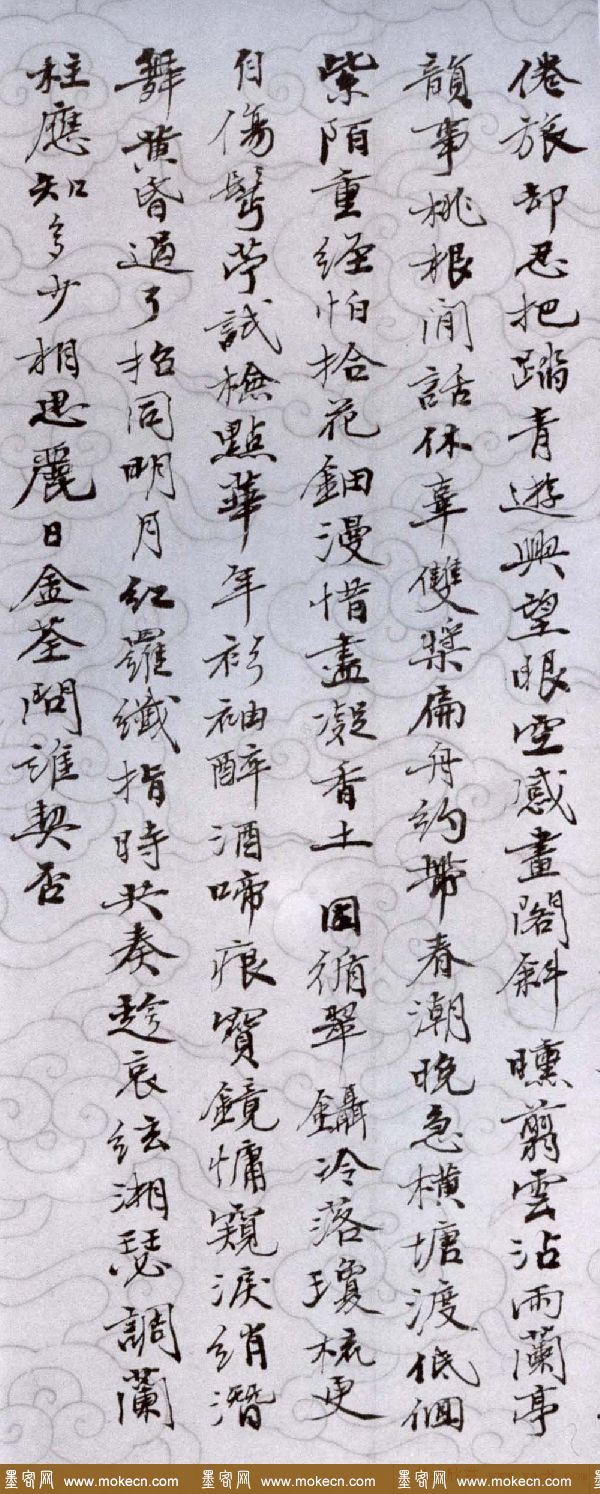 倦旅却忍把踏青遊興望眼空感畫閣斜曛翦雲沾雨蘭亭
韻事桃根閒話休牽雙槳扁舟約帶春潮晚急橫塘渡低佪
紫陌重經怕拾花鈿漫惜盡凝香土 因循翠鑷冷落瓊梳更
自傷鬢苧試檢點華年衫袖醉酒啼痕寶鏡慵窺淚綃潛
舞黃昏過了招同明月紅羅纖指時共奏趁哀絃湘瑟調蘭
柱應知多少相思麗日金荃問誰契否
墨客网 www.mokecn.com 墨客网 www.mokecn.com 墨客网 www.mokecn.com